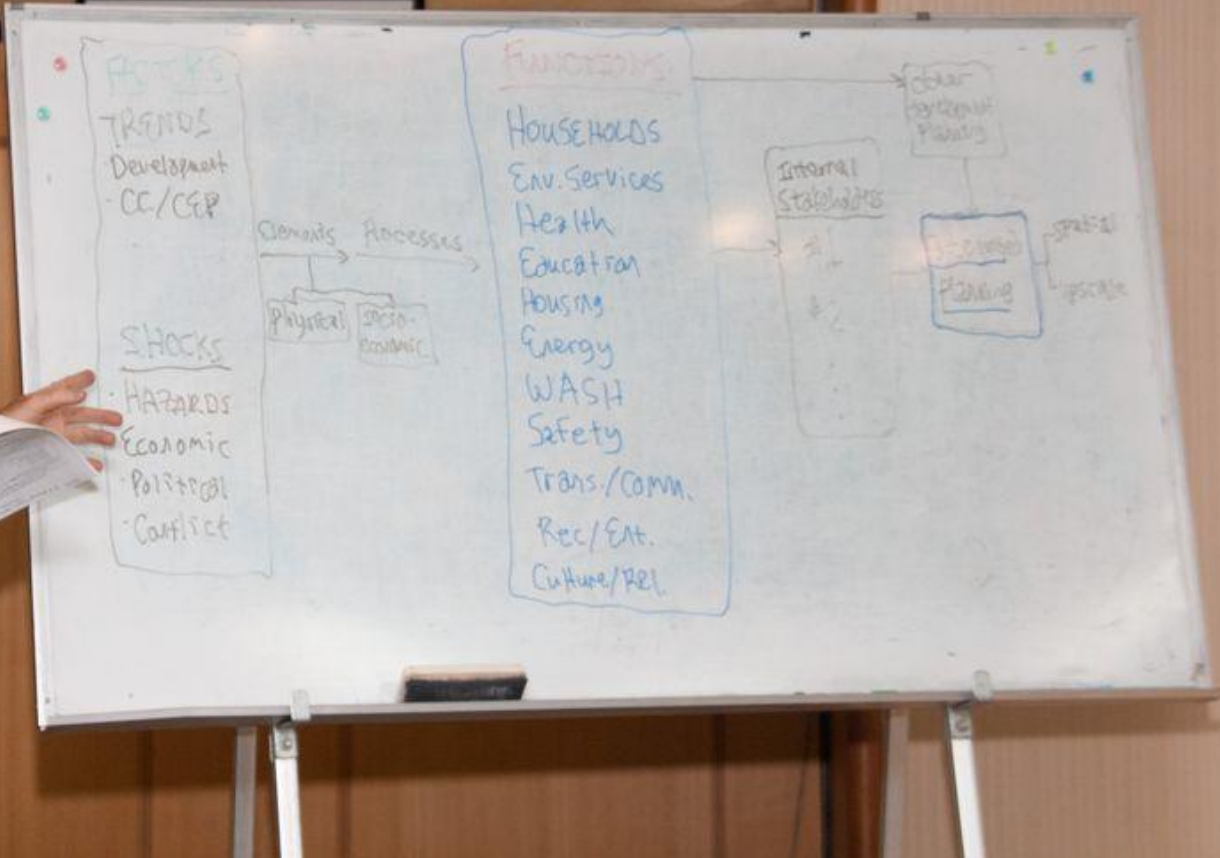 FACTORS
TRENDS
Development
· CC/CEP
SHOCKS
· HAZARDS
· Economic
· Political
· Conflict
Elements
Processes
Physical
Socio-
economic
FUNCTIONS
HOUSEHOLDS
Env. Services
Health
Education
Housing
Energy
WASH
Safety
Trans./Comm.
Rec/Ent.
Culture/Rel.
Internal
Stakeholders
#1
#2
other
Planning
Planning
spatial
upscale